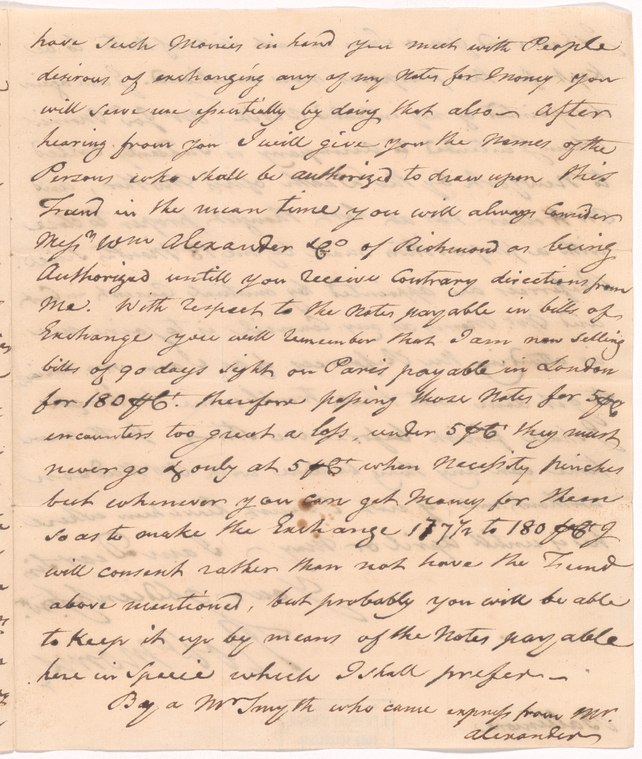 have such Monies in hand you meet with People
desirous of exchanging any of my Notes for Money you
will serve me essentially by doing that also — After
hearing from you I will give you the Names of the
Persons who shall be authorized to draw upon this
Fund in the mean time you will always Consider
Messrs Wm Alexander &Co of Richmond as being
Authorized untill you receive Contrary directions from
Me. With respect to the Notes payable in bills of
Exchange you will remember that I am now selling
bills of 90 days sight on Paris payable in London
for 180 PCt. therefore passing those Notes for 5PCt
encounters too great a loss, under 5PCt they must
never go & only at 5PCt when Necessity pinches
but whenever you can get Money for them
so as to make the Exchange 177½ to 180 PCt I
will consent rather than not have the Fund
above mentioned, but probably you will be able
to Keep it up by means of the Notes payable
here in Specie which I shall prefer —
By a Mr Smyth who came express from Mr.
Alexander